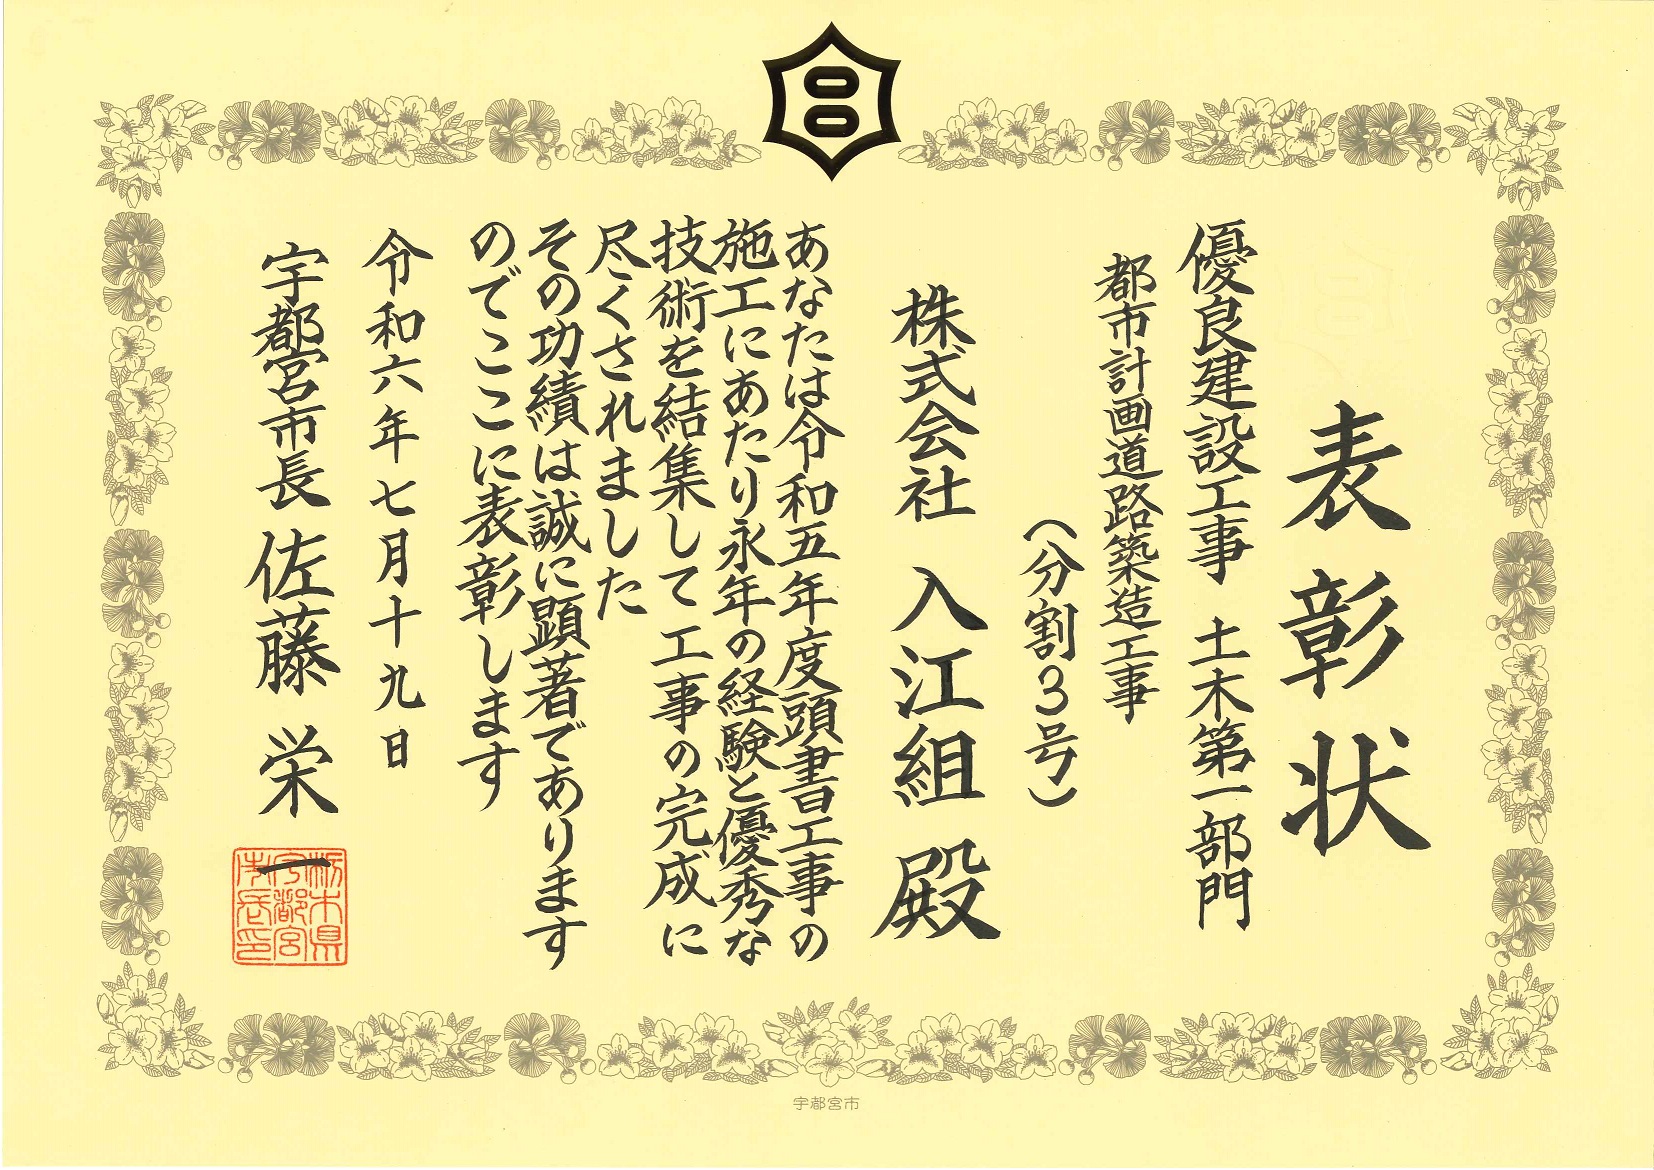 表彰状
優良建設工事 土木第一部門
都市計画道路築造工事
(分割3号)
株式会社 入江組 殿
あなたは令和五年度頭書工事の
施工にあたり永年の経験と優秀な
技術を結集して工事の完成に
尽くされました
その功績は誠に顕著であります
のでここに表彰します
令和六年七月十九日
宇都宮市長 佐藤栄一
栃木県
宇都宮
市長印
宇都宮市